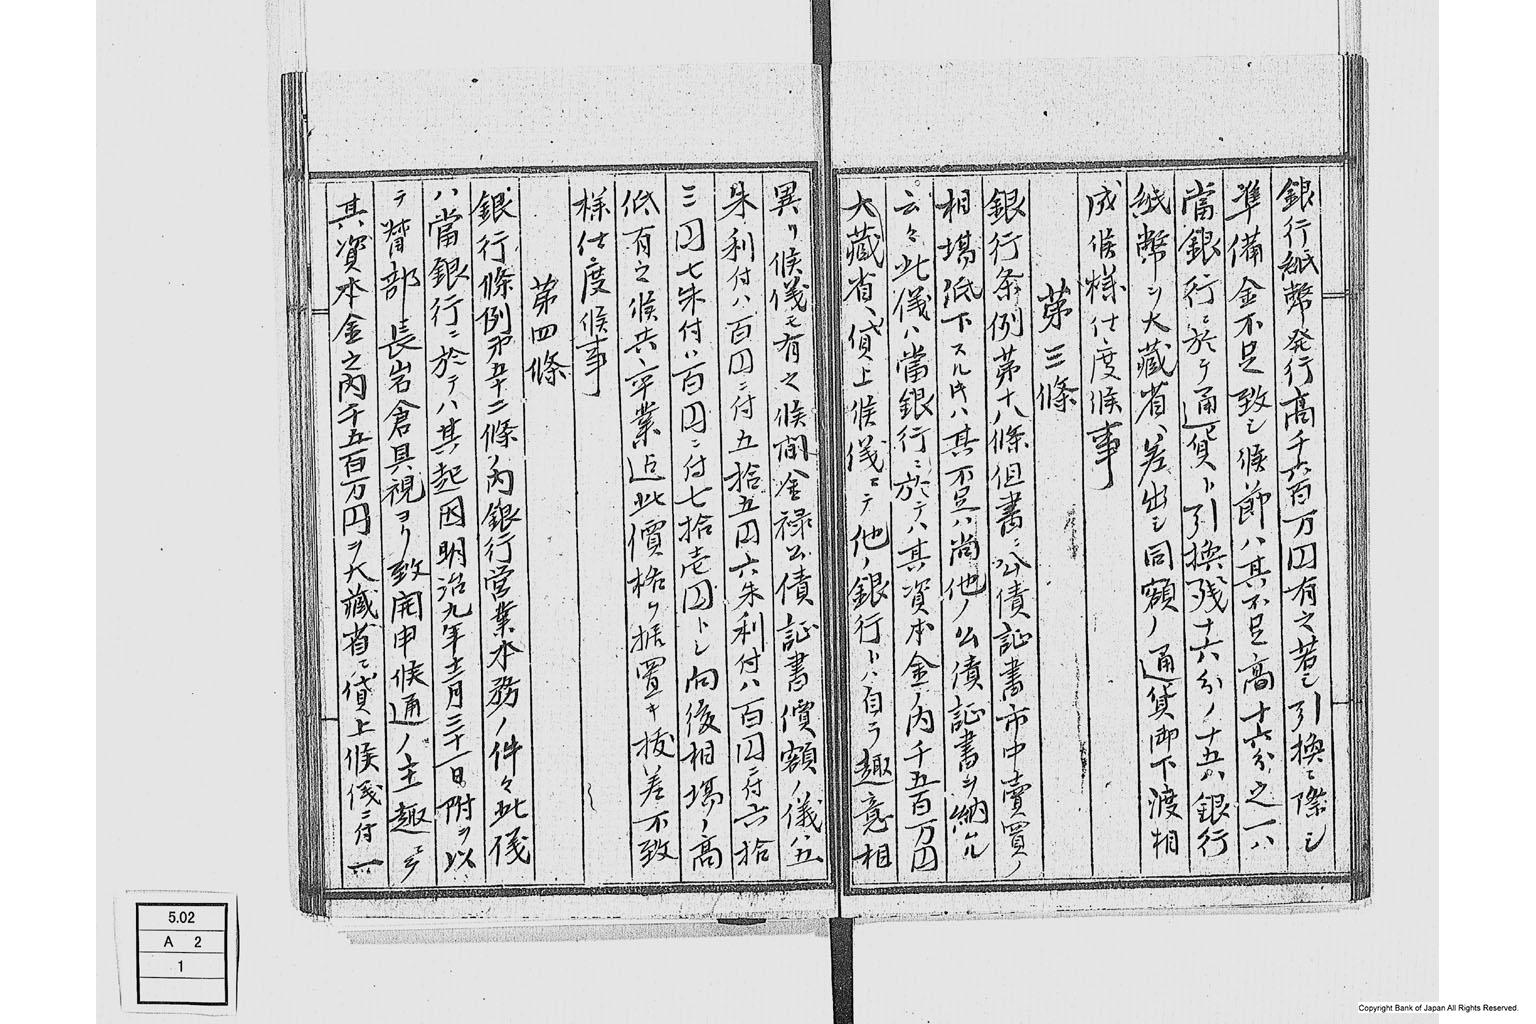 銀行紙幣発行高千六百万円有之若シ引換ニ際シ
準備金不足致シ候節ハ其不足高十六分之一ハ
當銀行ニ於テ通貨ト引換残十六分ノ十五ハ銀行
紙幣ヲ大藏省ヘ差出シ同額ノ通貨御下渡相
成候様仕度候事
第三條
銀行条例第十八條但書ニ公債証書市中賣買ノ
相場低下スル片ハ其不足ハ尚他ノ公債証書ヲ納ル
云々此儀ハ當銀行ニ於テハ其資本金ノ内千五百万円
大藏省ヘ貸上候儀ニテ他ノ銀行トハ自ラ趣意相
異リ候儀モ有之候間金禄公債証書價額ノ儀ハ五
朱利付ハ百円ニ付五拾五円六朱利付ハ百円ニ付六拾
三円七朱付ハ百円ニ付七拾壱円トシ向後相場ノ高
低有之候共卒業迠此價格ヲ据置キ抜差不致
様仕度候事
第四條
銀行條例第五十二條ノ内銀行営業本務ノ件々此儀
ハ當銀行ニ於テハ其起因明治九年十二月三十一日附ヲ以
テ督部長岩倉具視ヨリ致開申候通ノ主趣ニテ
其資本金之内千五百万円ヲ大藏省ヘ貸上候儀ニ付一
5.02
A 2
1
Copyright Bank of Japan All Rights Reserved.